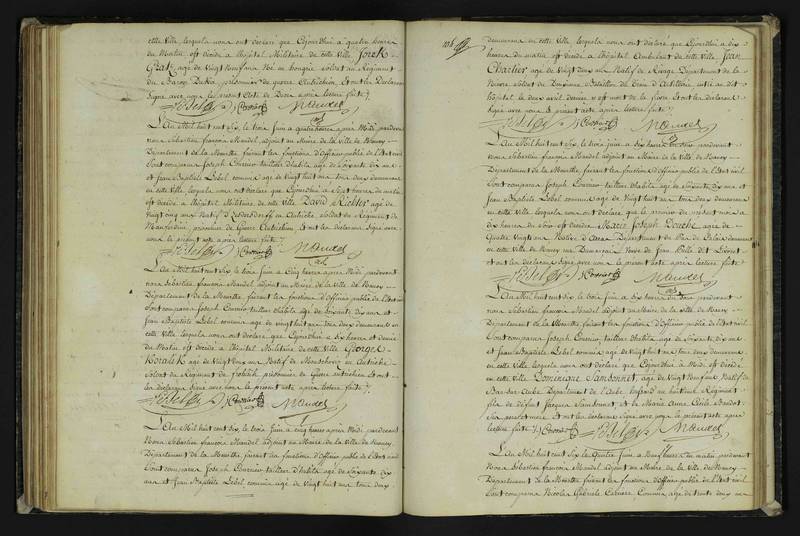 cette Ville, lesquels nous ont déclaré que Cejourdhui à quatre heures
du Matin est décédé à l'hôpital Militaire de cette Ville Joseh
agé de Vingt Neuf ans Né en hongrie Soldat au Régiment
du Baron prisonnier de guerre Autrichien, Et ont les Déclarans
Signé avec nous le présent Acte de Décès après lecture faite.
L'An Mil huit cent Six, le trois Juin à quatre heures après Midi, pardevant
nous Sébastien françois Mandel, adjoint au Maire de la Ville de Nancy
Département de la Meurthe faisant les fonctions d'Officier public de l'Etat civil
Sont comparus Joseph tailleur d'habits agé de Soixante dix ans
et Jean Baptiste Lebel commis agé de Vingt huit ans tous deux demeurans
en cette Ville, lesquels nous ont déclaré que Cejourdhui à Sept heures du matin
est décédé à l'hôpital Militaire de cette Ville David Richter agé de
Vingt cinq ans Natif de en Autriche, Soldat du Régiment de
prisonnier de Guerre Autrichien, Et ont les déclarans Signé avec
nous le présent acte après lecture faite.
L'An Mil huit cent Six, le trois Juin à Cinq heures après Midi, pardevant
nous Sébastien françois Mandel adjoint au Maire de la Ville de Nancy
Département de la Meurthe, faisant les fonctions d'Officier public de l'Etat civil
Sont comparus Joseph tailleur d'habits agé de Soixante dix ans et
Jean Baptiste Lebel commis agé de Vingt huit ans tous deux demeurans en
cette Ville lesquels nous ont déclaré que Cejourdhui à dix heures et demie
du Matin est décédé à l'hôpital Militaire de cette Ville George
Koralik agé de Vingt deux ans Natif de en Autriche
Soldat du Régiment de prisonnier de Guerre Autrichien Et ont
les déclarans Signé avec nous le présent acte après lecture faite.
L'An Mil huit cent Six, le trois Juin à cinq heures après Midi, pardevant
Nous Sébastien françois Mandel adjoint au Maire de la Ville de Nancy
Département de la Meurthe, faisant les fonctions d'officier public de l'Etat civil
Sont comparus Joseph tailleur d'habits agé de Soixante dix
ans et Jean Baptiste Lebel, commis agé de Vingt huit ans tous deux
demeurans en cette Ville, lesquels nous ont déclaré que Cejourdhui à dix
heures du matin est décédé à l'hôpital Ambulant de cette Ville Jean
Charlier agé de Vingt deux ans Natif de Département de la
Soldat du Bataillon du Train d'Artillerie, entré au dit
hôpital le deux avril dernier y est mort de la fièvre et ont les déclarans
Signé avec nous le présent acte après lecture faite.
L'An Mil huit cent Six, le trois Juin à Six heures du Soir, pardevant
nous Sébastien françois Mandel adjoint au Maire de la Ville de Nancy
Département de la Meurthe, faisant les fonctions d'Officier public de l'Etat civil
Sont comparus Joseph tailleur d'habits agé de Soixante dix ans, et
Jean Baptiste Lebel commis agé de Vingt huit ans tous deux demeurans
en cette Ville lesquels nous ont déclaré, que le premier du présent mois à
dix heures du Soir est décédé Marie Joseph agé de
Quatre Vingts ans Native d'Arras Département du Pas de Calais demeurant
en cette Ville de Nancy
et ont les déclarans Signé avec nous le présent acte après lecture faite.
L'An Mil huit cent Six, le trois Juin à Six heures du Soir pardevant
nous Sébastien françois Mandel adjoint au Maire de la Ville de Nancy
Département de la Meurthe, faisant les fonctions d'Officier public de l'Etat civil
Sont comparus Joseph tailleur d'habits agé de Soixante dix ans
et Jean Baptiste Lebel commis agé de Vingt huit ans tous deux demeurans
en cette Ville, lesquels nous ont déclaré que Cejourdhui à Midi est décédé
en cette Ville Dominique Sambonnet, agé de Vingt Neuf ans Natif de
Bar sur Aube Département de l'Aube au huitième Régiment
fils de défunt Jacques Sambonnet et de Marie Anne Cécile
Et ont les déclarans Signé avec nous le présent acte après
lecture faite.
L'An Mil huit cent Six le Quatre Juin à Neuf heures du matin pardevant
Nous Sébastien françois Mandel adjoint au Maire de la Ville de Nancy
Département de la Meurthe faisant les fonctions d'officier public de l'Etat civil
Sont comparus Nicolas Gabriel Commis, agé de trente deux ans